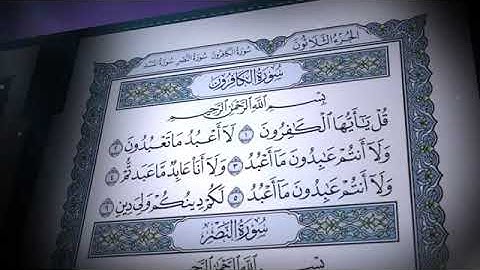 الجزء الثلاثون
سورة الكافرون سورة النصر سورة المسد
سُورَةُ الكَافِرُونَ
بِسْمِ اللَّهِ الرَّحْمَٰنِ الرَّحِيمِ
قُلْ يَٰٓأَيُّهَا ٱلْكَٰفِرُونَ ١ لَآ أَعْبُدُ مَا تَعْبُدُونَ ٢
وَلَآ أَنتُمْ عَٰبِدُونَ مَآ أَعْبُدُ ٣ وَلَآ أَنَا۠ عَابِدٌ مَّا عَبَدتُّمْ ٤
وَلَآ أَنتُمْ عَٰبِدُونَ مَآ أَعْبُدُ ٥ لَكُمْ دِينُكُمْ وَلِيَ دِينِ ٦
سُورَةُ النَّصْرِ
بِسْمِ اللَّهِ الرَّحْمَٰنِ الرَّحِيمِ